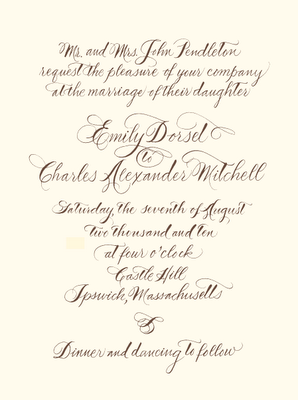 Mr. and Mrs. John Pendleton
request the pleasure of your company
at the marriage of their daughter
Emily Dorsel
to
Charles Alexander Mitchell
Saturday, the seventh of August
two thousand and ten
at four o'clock
Castle Hill
Ipswich, Massachusetts
&
Dinner and dancing to follow